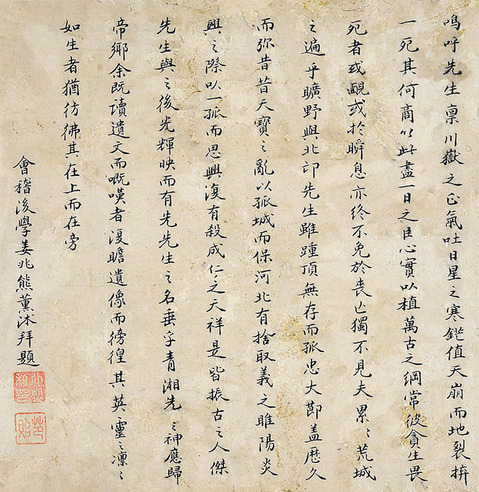 嗚呼先生稟川嶽之正氣吐日星之寒鋩值天崩而地裂拚
一死其何商以此盡一日之臣心實以植萬古之綱常彼貪生畏
死者或覯或於瞬息亦終不免於喪亡獨不見夫累〻荒城
之遍乎曠野與北邙先生雖踵頂無存而孤忠大節蓋歷久
而弥昔昔天寶之亂以孤城而保河北有捨取義之睢陽炎
興之際以一旅而思興復有殺成仁之天祥是皆振古之人傑
先生與之後光輝映而有先先生之名垂乎青湘先〻神應歸
帝鄉余既讀遺文而嘅嘆者復瞻遺像而徬徨其英靈之凜〻
如生者猶彷彿其在上而在旁
會稽後學姜兆熊薰沐拜題